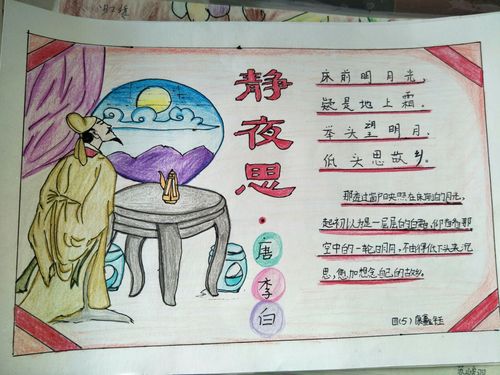 静夜思
·唐 李白
床前明月光,
疑是地上霜。
举头望明月,
低头思故乡。
那透过窗户映照在床前的月光,
起初以为是一层层的白霜,仰首看那
空中的一轮明月,不由得低下头来沉
思,愈加想念自己的故乡。
四(5)